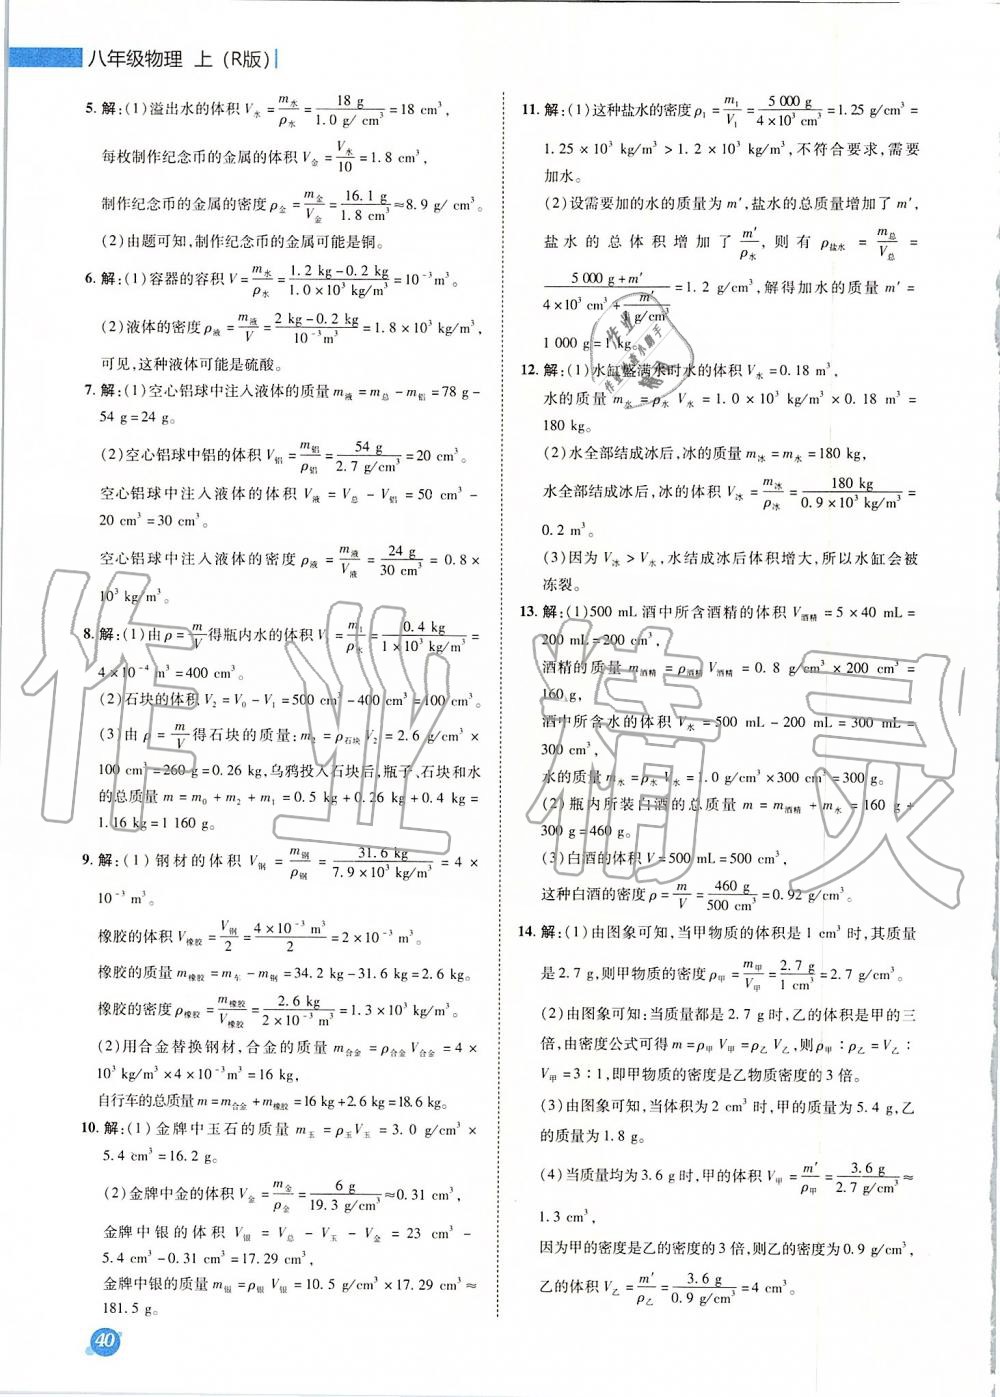 八年级物理 上（R版）
5. 解:(1)溢出水的体积 V水 = m水/ρ水 = 18 g/1.0 g/cm³ = 18 cm³,
每枚制作纪念币的金属的体积 V金 = V水/10 = 1.8 cm³,
制作纪念币的金属的密度 ρ金 = m金/V金 = 16.1 g/1.8 cm³ ≈8.9 g/cm³。
(2)由题可知,制作纪念币的金属可能是铜。
6. 解:(1)容器的容积 V = m水/ρ水 = 1.2 kg-0.2 kg/1.0×10³ kg/m³ = 10⁻³ m³,
(2)液体的密度 ρ液 = m液/V = 2 kg-0.2 kg/10⁻³ m³ = 1.8×10³ kg/m³,
可见,这种液体可能是硫酸。
7. 解:(1)空心铝球中注入液体的质量 m液 = m总 - m铝 = 78 g -
54 g = 24 g。
(2)空心铝球中铝的体积 V铝 = m铝/ρ铝 = 54 g/2.7 g/cm³ = 20 cm³,
空心铝球中注入液体的体积 V液 = V总 - V铝 = 50 cm³ -
20 cm³ = 30 cm³。
空心铝球中注入液体的密度 ρ液 = m液/V液 = 24 g/30 cm³ = 0.8×
10³ kg/m³。
8. 解:(1)由 ρ = m/V 得瓶内水的体积 V₁ = m₁/ρ水 = 0.4 kg/1×10³ kg/m³ =
4×10⁻⁴ m³ = 400 cm³。
(2)石块的体积 V₂ = V₀ - V₁ = 500 cm³ - 400 cm³ = 100 cm³。
(3)由 ρ = m/V 得石块的质量: m₂ = ρ石块 V₂ = 2.6 g/cm³ ×
100 cm³ = 260 g = 0.26 kg,乌鸦投入石块后,瓶子、石块和水
的总质量 m = m₀ + m₂ + m₁ = 0.5 kg + 0.26 kg + 0.4 kg =
1.16 kg = 1 160 g。
9. 解:(1)钢材的体积 V钢 = m钢/ρ钢 = 31.6 kg/7.9×10³ kg/m³ = 4 ×
10⁻³ m³,
橡胶的体积 V橡胶 = V钢/2 = 4×10⁻³ m³/2 = 2×10⁻³ m³,
橡胶的质量 m橡胶 = m车 - m钢 = 34.2 kg - 31.6 kg = 2.6 kg。
橡胶的密度 ρ橡胶 = m橡胶/V橡胶 = 2.6 kg/2×10⁻³ m³ = 1.3×10³ kg/m³。
(2)用合金替换钢材,合金的质量 m合金 = ρ合金 V合金 = 4×
10³ kg/m³×4×10⁻³ m³ = 16 kg,
自行车的总质量 m = m合金 + m橡胶 = 16 kg+2.6 kg = 18.6 kg。
10. 解:(1)金牌中玉石的质量 m玉 = ρ玉V玉 = 3.0 g/cm³ ×
5.4 cm³ = 16.2 g。
(2)金牌中金的体积 V金 = m金/ρ金 = 6 g/19.3 g/cm³ ≈0.31 cm³,
金牌中银的体积 V银 = V总 - V玉 - V金 = 23 cm³ -
5.4 cm³ - 0.31 cm³ = 17.29 cm³,
金牌中银的质量 m银 = ρ银 V银 = 10.5 g/cm³ × 17.29 cm³ ≈
181.5 g。
40
11. 解:(1)这种盐水的密度 ρ₁ = m₁/V₁ = 5 000 g/4×10³ cm³ = 1.25 g/cm³ =
1.25×10³ kg/m³ > 1.2×10³ kg/m³,不符合要求,需要
加水。
(2)设需要加的水的质量为 m′,盐水的总质量增加了 m′,
盐水的总体积增加了 m′/ρ水, 则有 ρ盐水 = m总/V总 =
5 000 g + m′/4×10³ cm³ + m′/1 g/cm³ = 1.2 g/cm³,解得加水的质量 m′ =
1 000 g = 1 kg。
12. 解:(1)水缸盛满水时水的体积 V水 = 0.18 m³,
水的质量 m水 = ρ水 V水 = 1.0×10³ kg/m³ × 0.18 m³ =
180 kg。
(2)水全部结成冰后,冰的质量 m冰 = m水 = 180 kg,
水全部结成冰后,冰的体积 V冰 = m冰/ρ冰 = 180 kg/0.9×10³ kg/m³ =
0.2 m³。
(3)因为 V冰 > V水,水结成冰后体积增大,所以水缸会被
冻裂。
13. 解:(1)500 mL 酒中所含酒精的体积 V酒精 = 5 × 40 mL =
200 mL = 200 cm³,
酒精的质量 m酒精 = ρ酒精 V酒精 = 0.8 g/cm³ × 200 cm³ =
160 g,
酒中所含水的体积 V水 = 500 mL - 200 mL = 300 mL =
300 cm³,
水的质量 m水 = ρ水 V水 = 1.0 g/cm³×300 cm³ = 300 g。
(2)瓶内所装白酒的总质量 m = m酒精 + m水 = 160 g +
300 g = 460 g。
(3)白酒的体积 V = 500 mL = 500 cm³,
这种白酒的密度 ρ = m/V = 460 g/500 cm³ = 0.92 g/cm³。
14. 解:(1)由图象可知,当甲物质的体积是 1 cm³ 时,其质量
是 2.7 g,则甲物质的密度 ρ甲 = m甲/V甲 = 2.7 g/1 cm³ = 2.7 g/cm³。
(2)由图象可知:当质量都是 2.7 g 时,乙的体积是甲的三
倍,由密度公式可得 m = ρ甲 V甲 = ρ乙 V乙,则 ρ甲∶ρ乙 = V乙∶
V甲 = 3∶1,即甲物质的密度是乙物质密度的 3 倍。
(3)由图象可知,当体积为 2 cm³ 时,甲的质量为 5.4 g,乙
的质量为 1.8 g。
(4)当质量均为 3.6 g 时,甲的体积 V甲 = m′/ρ甲 = 3.6 g/2.7 g/cm³ ≈
1.3 cm³,
因为甲的密度是乙的密度的 3 倍,则乙的密度为 0.9 g/cm³,
乙的体积 V乙 = m′/ρ乙 = 3.6 g/0.9 g/cm³ = 4 cm³。
作业精灵